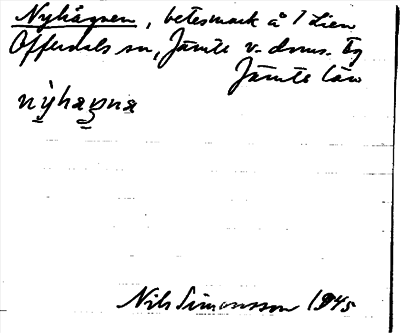 Nyhägnen, betesmark å 1 Lien
Offerdals sn, Jämtl v. doms. tg
Jämtl län
nỳhægnæ
Nils Simonsson 1945